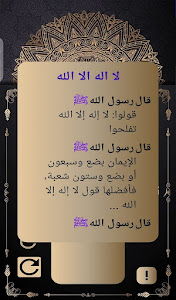 لا اله الا الله
قال رسول الله ﷺ
قولوا: لا إله إلا الله
تفلحوا
قال رسول الله ﷺ
الإيمان بضع وسبعون
أو بضع وستون شعبة،
فأفضلها قول لا إله إلا
الله ...
قال رسول الله ﷺ
!